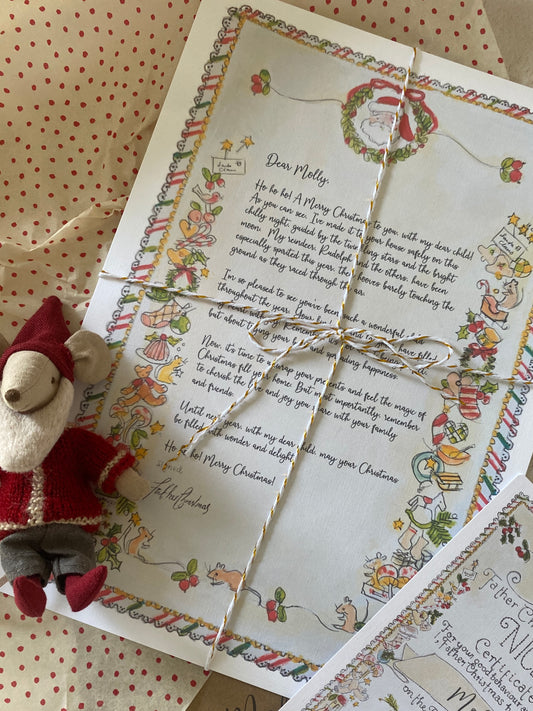 Dear Molly,
Ho ho ho! A Merry Christmas to you, with my dear child!
As you can see, I've made it to your house safely on this
chilly night, guided by the twinkling stars and the bright
moon. My reindeer, Rudolph and the others, have been
especially spirited this year, their hooves barely touching the
ground as they raced through the air.
I'm so pleased to see you've been such a wonderful child
throughout the year. Your
but about and spreading happiness.
Now, it's time to unwrap your presents and feel the magic of
Christmas fill your home. But most importantly, remember
to cherish the love and joy you share with your family
and friends.
Until next year, with my dear child, may your Christmas
be filled with wonder and delight.
Ho ho ho! Merry Christmas!
Father Christmas
Father
NIC
Certificate
For your good behaviour
Father Christmas
on the
M